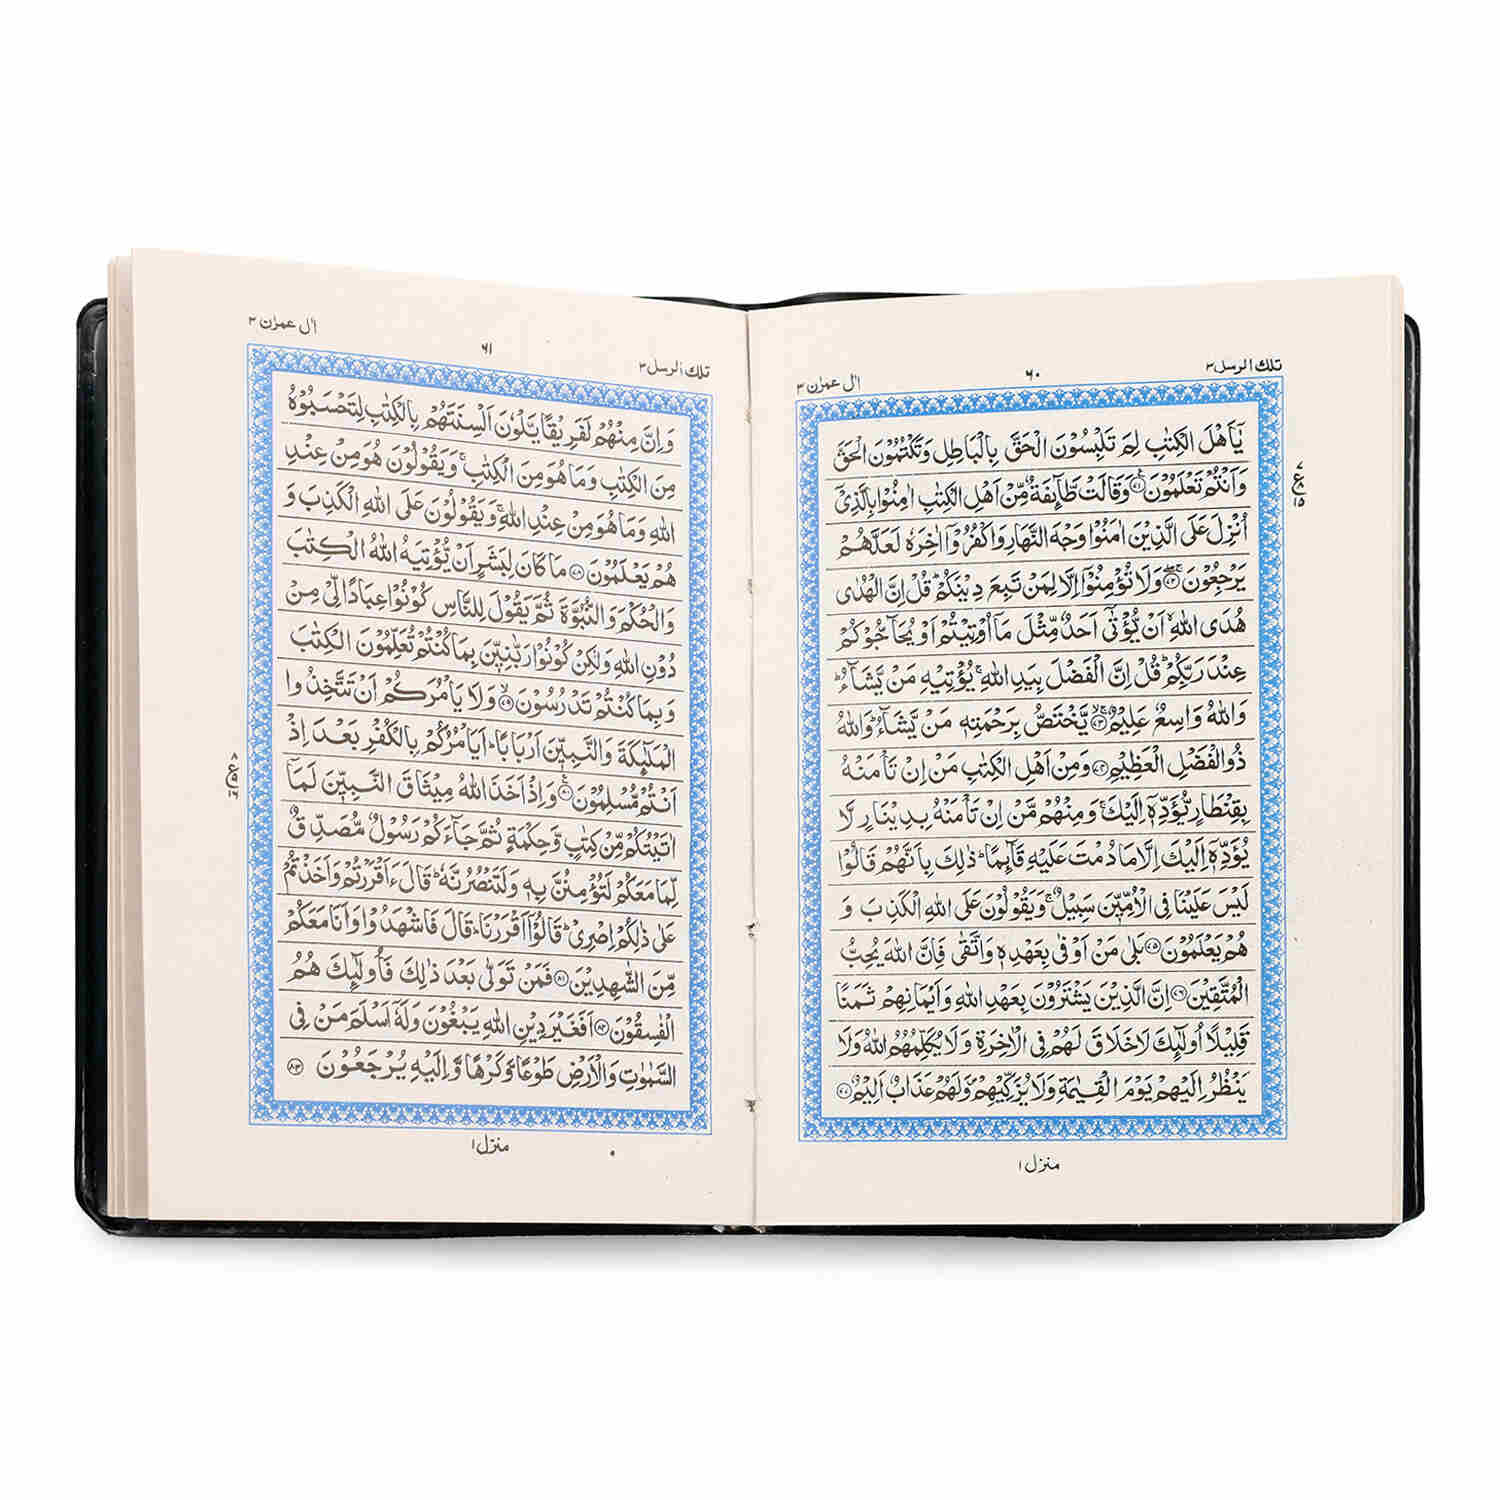 تلك الرسل ٣
٦٠
اٰل عمرٰن ٣
يٰٓاَهْلَ الْكِتٰبِ لِمَ تَلْبِسُوْنَ الْحَقَّ بِالْبَاطِلِ وَتَكْتُمُوْنَ الْحَقَّ
وَاَنْتُمْ تَعْلَمُوْنَ ۝٧١ وَقَالَتْ طَّآئِفَةٌ مِّنْ اَهْلِ الْكِتٰبِ اٰمِنُوْا بِالَّذِيْٓ
اُنْزِلَ عَلَى الَّذِيْنَ اٰمَنُوْا وَجْهَ النَّهَارِ وَاكْفُرُوْٓا اٰخِرَهٗ لَعَلَّهُمْ
يَرْجِعُوْنَ ۝٧٢ وَلَا تُؤْمِنُوْٓا اِلَّا لِمَنْ تَبِعَ دِيْنَكُمْ ؕ قُلْ اِنَّ الْهُدٰى
هُدَى اللّٰهِ ۙ اَنْ يُّؤْتٰٓى اَحَدٌ مِّثْلَ مَآ اُوْتِيْتُمْ اَوْ يُحَآجُّوْكُمْ
عِنْدَ رَبِّكُمْ ؕ قُلْ اِنَّ الْفَضْلَ بِيَدِ اللّٰهِ ۚ يُؤْتِيْهِ مَنْ يَّشَآءُ ؕ
وَاللّٰهُ وَاسِعٌ عَلِيْمٌ ۝٧٣ يَّخْتَصُّ بِرَحْمَتِهٖ مَنْ يَّشَآءُ ؕ وَاللّٰهُ
ذُو الْفَضْلِ الْعَظِيْمِ ۝٧٤ وَمِنْ اَهْلِ الْكِتٰبِ مَنْ اِنْ تَاْمَنْهُ
بِقِنْطَارٍ يُّؤَدِّهٖٓ اِلَيْكَ ۚ وَمِنْهُمْ مَّنْ اِنْ تَاْمَنْهُ بِدِيْنَارٍ لَّا
يُؤَدِّهٖٓ اِلَيْكَ اِلَّا مَا دُمْتَ عَلَيْهِ قَآئِمًا ؕ ذٰلِكَ بِاَنَّهُمْ قَالُوْا
لَيْسَ عَلَيْنَا فِى الْاُمِّيّٖنَ سَبِيْلٌ ۚ وَيَقُوْلُوْنَ عَلَى اللّٰهِ الْكَذِبَ وَ
هُمْ يَعْلَمُوْنَ ۝٧٥ بَلٰى مَنْ اَوْفٰى بِعَهْدِهٖ وَاتَّقٰى فَاِنَّ اللّٰهَ يُحِبُّ
الْمُتَّقِيْنَ ۝٧٦ اِنَّ الَّذِيْنَ يَشْتَرُوْنَ بِعَهْدِ اللّٰهِ وَاَيْمَانِهِمْ ثَمَنًا
قَلِيْلًا اُولٰٓئِكَ لَا خَلَاقَ لَهُمْ فِى الْاٰخِرَةِ وَلَا يُكَلِّمُهُمُ اللّٰهُ وَلَا
يَنْظُرُ اِلَيْهِمْ يَوْمَ الْقِيٰمَةِ وَلَا يُزَكِّيْهِمْ ۪ وَلَهُمْ عَذَابٌ اَلِيْمٌ ۝٧٧
منزل ١
تلك الرسل ٣
٦١
اٰل عمرٰن ٣
وَاِنَّ مِنْهُمْ لَفَرِيْقًا يَّلْوٗنَ اَلْسِنَتَهُمْ بِالْكِتٰبِ لِتَحْسَبُوْهُ
مِنَ الْكِتٰبِ وَمَا هُوَ مِنَ الْكِتٰبِ ۚ وَيَقُوْلُوْنَ هُوَ مِنْ عِنْدِ
اللّٰهِ وَمَا هُوَ مِنْ عِنْدِ اللّٰهِ ۚ وَيَقُوْلُوْنَ عَلَى اللّٰهِ الْكَذِبَ وَ
هُمْ يَعْلَمُوْنَ ۝٧٨ مَا كَانَ لِبَشَرٍ اَنْ يُّؤْتِيَهُ اللّٰهُ الْكِتٰبَ
وَالْحُكْمَ وَالنُّبُوَّةَ ثُمَّ يَقُوْلَ لِلنَّاسِ كُوْنُوْا عِبَادًا لِّيْ مِنْ
دُوْنِ اللّٰهِ وَلٰكِنْ كُوْنُوْا رَبّٰنِيّٖنَ بِمَا كُنْتُمْ تُعَلِّمُوْنَ الْكِتٰبَ
وَبِمَا كُنْتُمْ تَدْرُسُوْنَ ۝٧٩ وَلَا يَاْمُرَكُمْ اَنْ تَتَّخِذُوا
الْمَلٰٓئِكَةَ وَالنَّبِيّٖنَ اَرْبَابًا ؕ اَيَاْمُرُكُمْ بِالْكُفْرِ بَعْدَ اِذْ
اَنْتُمْ مُّسْلِمُوْنَ ۝٨٠ وَاِذْ اَخَذَ اللّٰهُ مِيْثَاقَ النَّبِيّٖنَ لَمَآ
اٰتَيْتُكُمْ مِّنْ كِتٰبٍ وَّحِكْمَةٍ ثُمَّ جَآءَكُمْ رَسُوْلٌ مُّصَدِّقٌ
لِّمَا مَعَكُمْ لَتُؤْمِنُنَّ بِهٖ وَلَتَنْصُرُنَّهٗ ؕ قَالَ ءَاَقْرَرْتُمْ وَاَخَذْتُمْ
عَلٰى ذٰلِكُمْ اِصْرِيْ ؕ قَالُوْٓا اَقْرَرْنَا ؕ قَالَ فَاشْهَدُوْا وَاَنَا مَعَكُمْ
مِّنَ الشّٰهِدِيْنَ ۝٨١ فَمَنْ تَوَلّٰى بَعْدَ ذٰلِكَ فَاُولٰٓئِكَ هُمُ
الْفٰسِقُوْنَ ۝٨٢ اَفَغَيْرَ دِيْنِ اللّٰهِ يَبْغُوْنَ وَلَهٗٓ اَسْلَمَ مَنْ فِى
السَّمٰوٰتِ وَالْاَرْضِ طَوْعًا وَّكَرْهًا وَّاِلَيْهِ يُرْجَعُوْنَ ۝٨٣
منزل ١